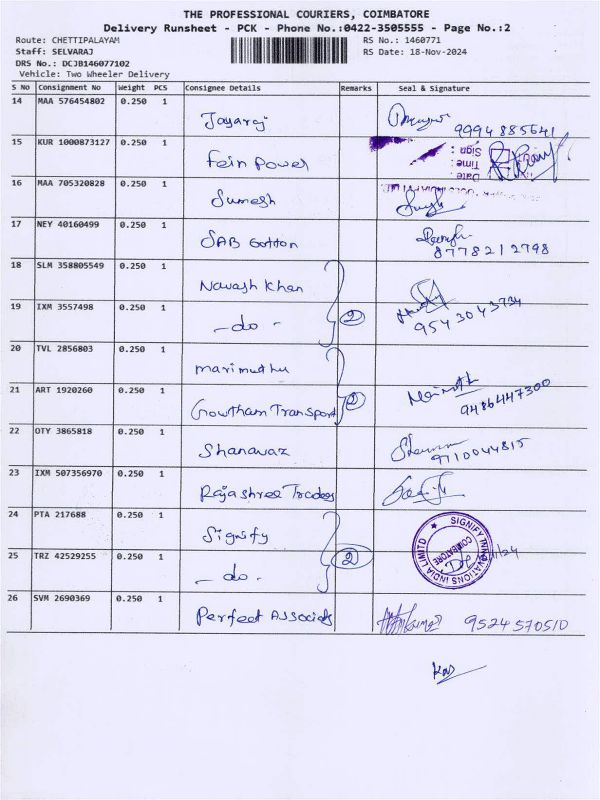 THE PROFESSIONAL COURIERS, COIMBATORE
Delivery Runsheet - PCK - Phone No.:0422-3505555 - Page No.:2
Route: CHETTIPALAYAM RS No.: 1460771
Staff: SELVARAJ RS Date: 18-Nov-2024
DRS No.: DCJB146077102
Vehicle: Two Wheeler Delivery
S No Consignment No Weight PCS Consignee Details Remarks Seal & Signature
14 MAA 576454802 0.250 1 Jayaraj 9994885641
15 KUR 1000873127 0.250 1 Fein Power
Sign :
Time :
Date :
16 MAA 705320828 0.250 1 Sumesh
17 NEY 40160499 0.250 1 SAB Cotton 8778212798
18 SLM 358805549 0.250 1 Navash Khan
19 IXM 3557498 0.250 1 - do - 2 9543043734
20 TVL 2856803 0.250 1 marimuthu
21 ART 1920260 0.250 1 Gowtham Transport 2 9486447300
22 OTY 3865818 0.250 1 Shanavaz 9710044815
23 IXM 507356970 0.250 1 Rajashree Traders
24 PTA 217688 0.250 1 Signify
SIGNIFY INNOVATIONS INDIA LIMITED
COIMBATORE
25 TRZ 42529255 0.250 1 - do - 2
26 SVM 2690369 0.250 1 Perfect Associats 9524570510